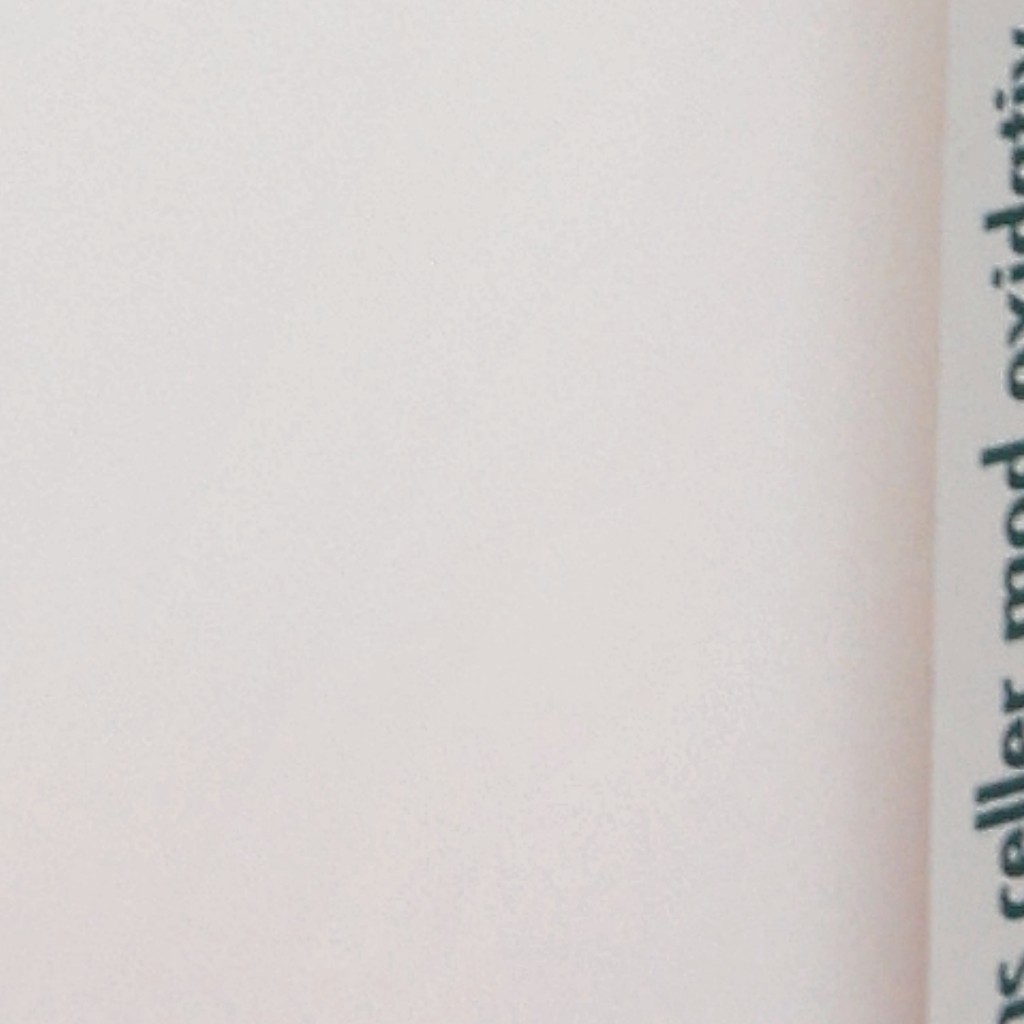 ns celler mod oxidativ